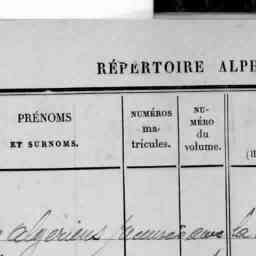 RÉPERTOIRE ALPH
PRÉNOMS
ET SURNOMS.
NUMÉROS
ma-
tricules.
NU-
MÉRO
du
volume.
algériens
la